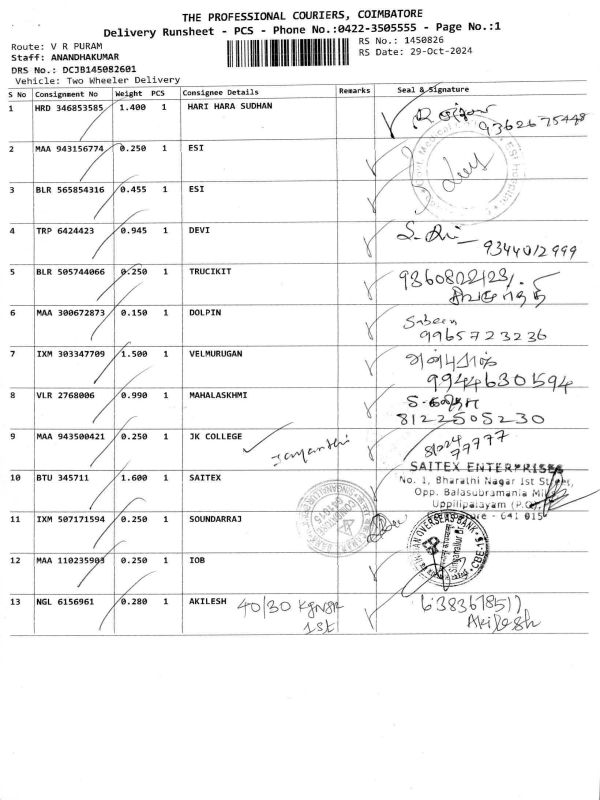 THE PROFESSIONAL COURIERS, COIMBATORE
Delivery Runsheet - PCS - Phone No.:0422-3505555 - Page No.:1
Route: V R PURAM
RS No.: 1450826
Staff: ANANDHAKUMAR
RS Date: 29-Oct-2024
DRS No.: DCJB145082601
Vehicle: Two Wheeler Delivery
S No Consignment No Weight PCS Consignee Details Remarks Seal & Signature
1 HRD 346853585 1.400 1 HARI HARA SUDHAN
9362675448
2 MAA 943156774 0.250 1 ESI
3 BLR 565854316 0.455 1 ESI
4 TRP 6424423 0.945 1 DEVI
9344012999
5 BLR 505744066 0.250 1 TRUCIKIT
6 MAA 300672873 0.150 1 DOLPIN
Sabeen
9965723236
7 IXM 303347709 1.500 1 VELMURUGAN
9944630594
8 VLR 2768006 0.990 1 MAHALASKHMI
8122505230
9 MAA 943500421 0.250 1 JK COLLEGE
Jayanthi
81224
77777
10 BTU 345711 1.600 1 SAITEX
SAITEX ENTERPRISES
No. 1, Bharathi Nagar 1st Street,
Opp. Balasubramania Mill
Uppilipalayam (P.O),
641 015
11 IXM 507171594 0.250 1 SOUNDARRAJ
12 MAA 110235903 0.250 1 IOB
INDIAN OVERSEAS BANK
Singanallur
13 NGL 6156961 0.280 1 AKILESH
40/30 KGNGR
1st
Akilesh